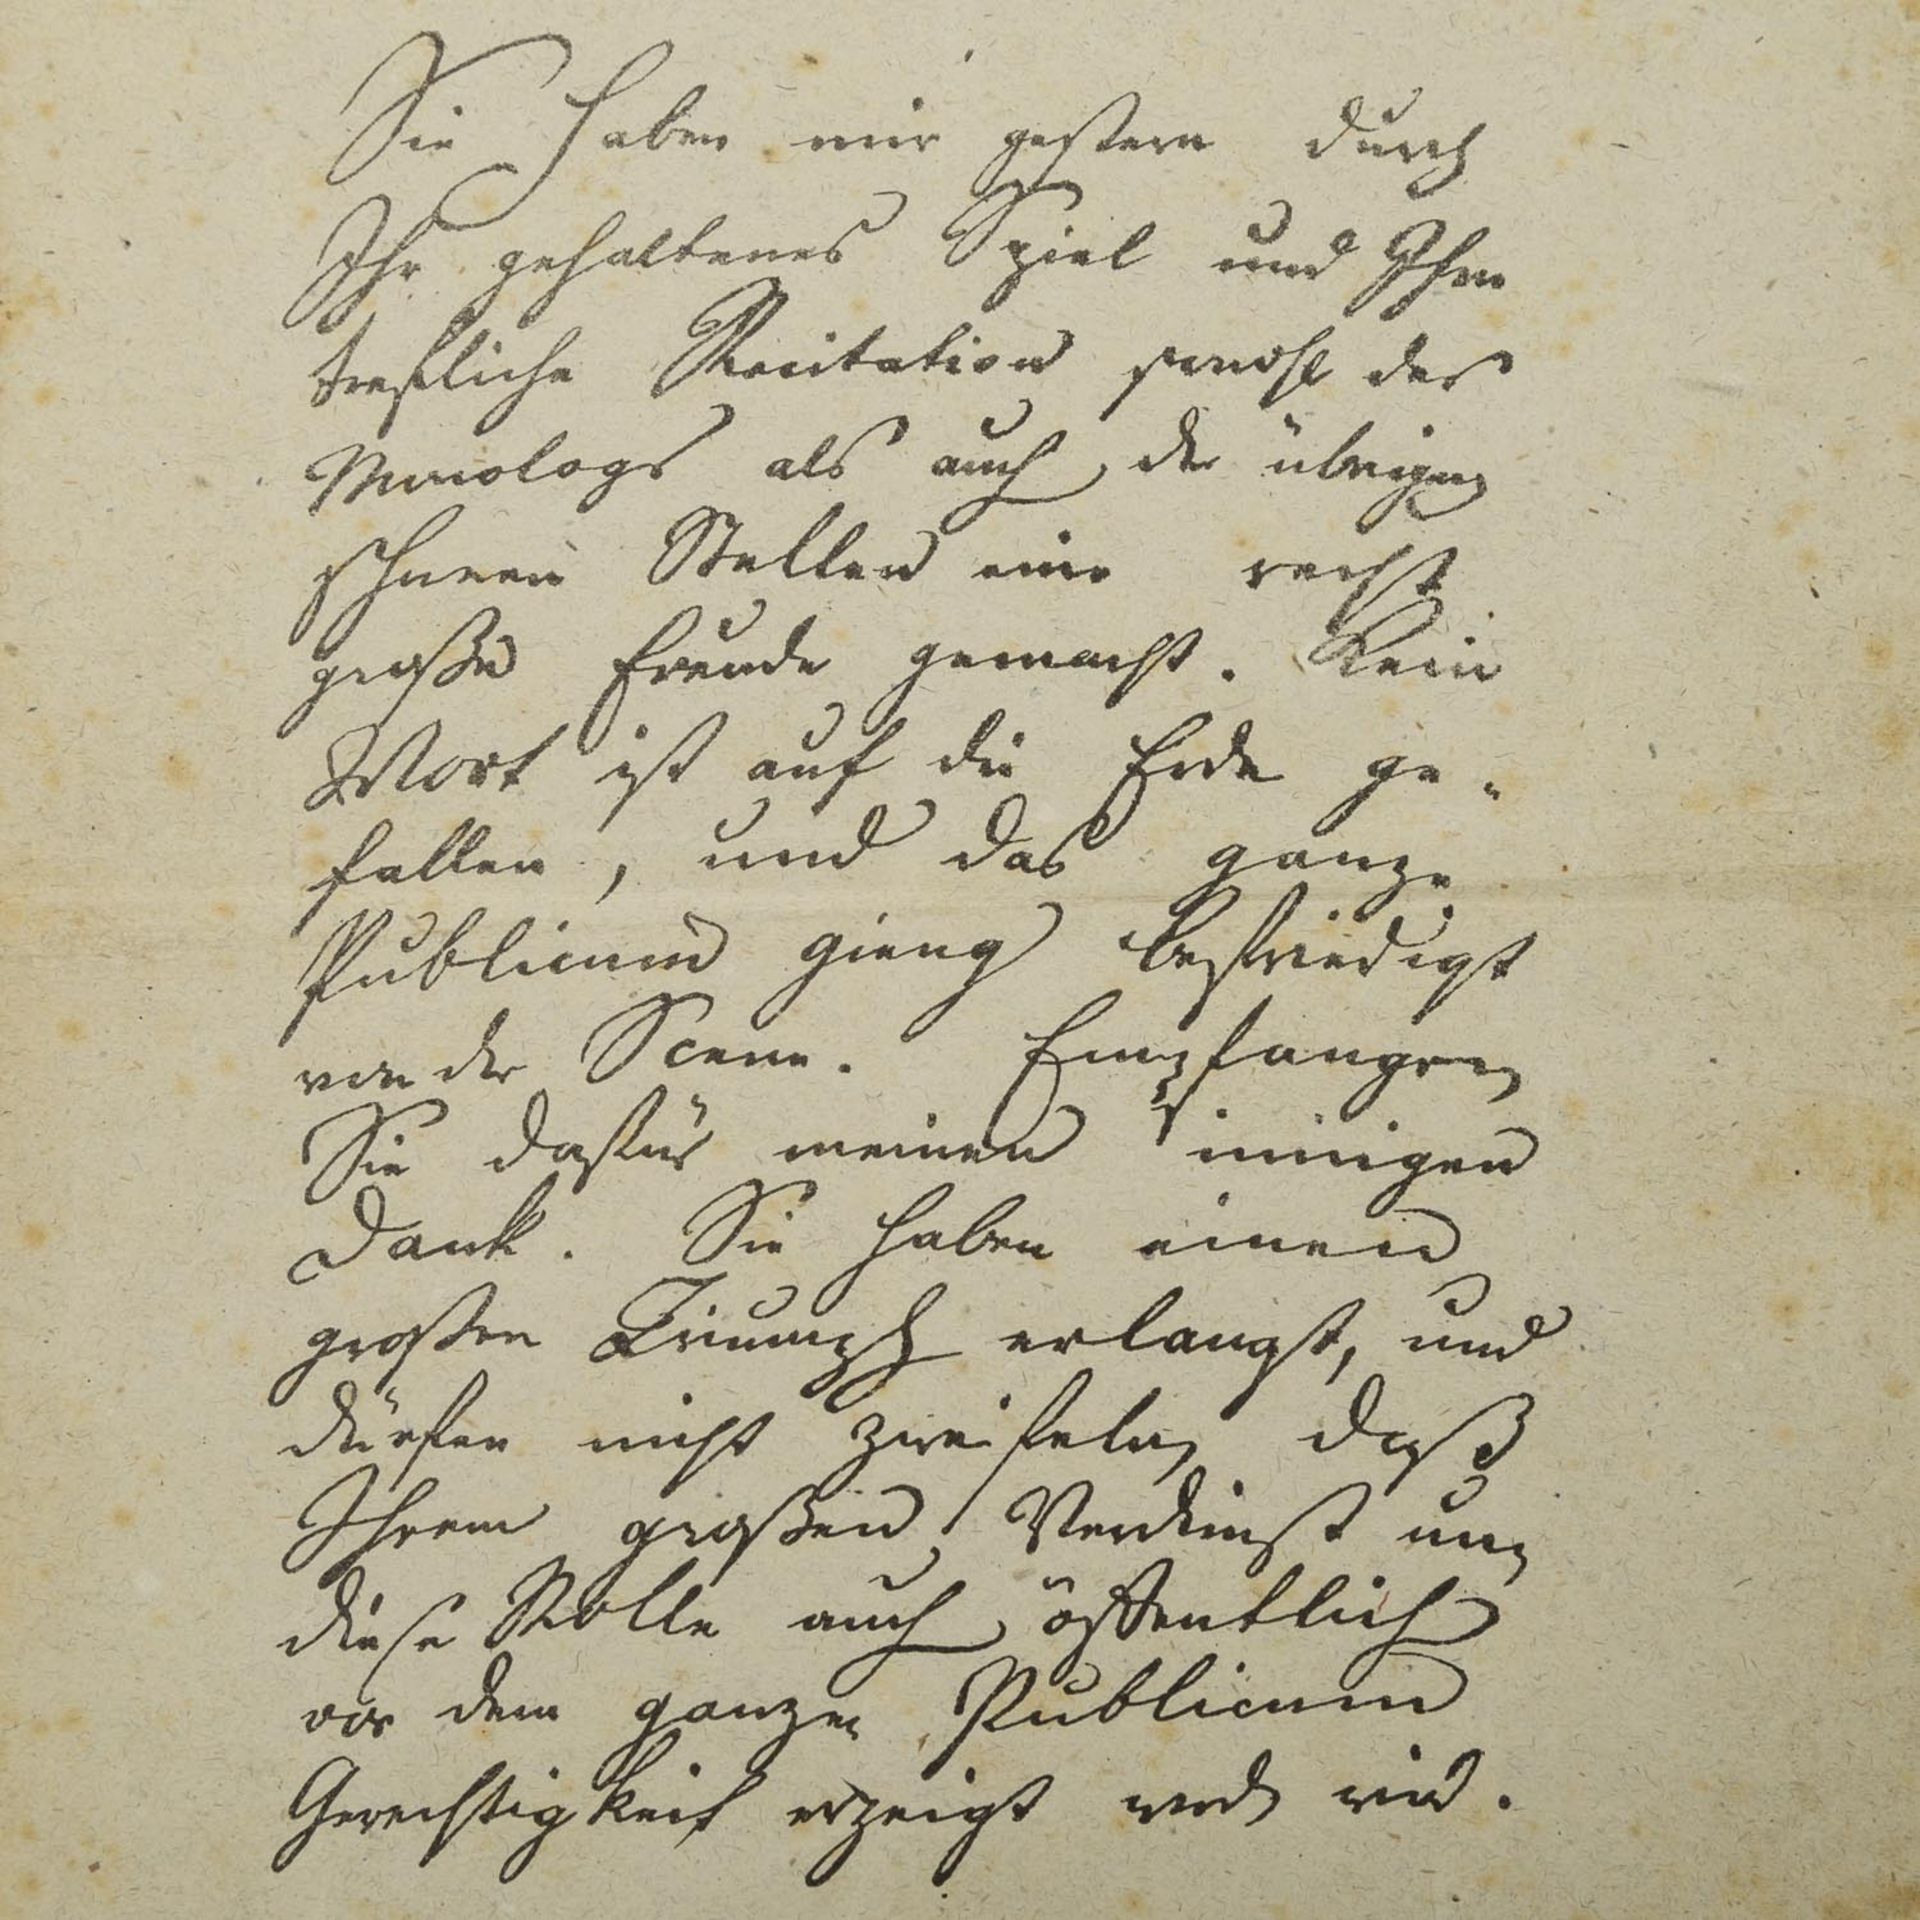 Sie haben mir gestern durch
Ihr gehaltenes Spiel und Ihre
trefliche Recitation sowohl des
Monologs als auch der übrigen
schweren Stellen eine recht
große Freude gemacht. Kein
Wort ist auf die Erde ge-
fallen, und das ganze
Publicum gieng befriedigt
von der Scene. Empfangen
Sie dafür meinen innigen
Dank. Sie haben einen
großen Triumph erlangt, und
dürfen nicht zweifeln, daß
Ihrem großen Verdienst um
diese Rolle auch öffentlich
vor dem ganzen Publicum
Gerechtigkeit erzeigt werden wird.